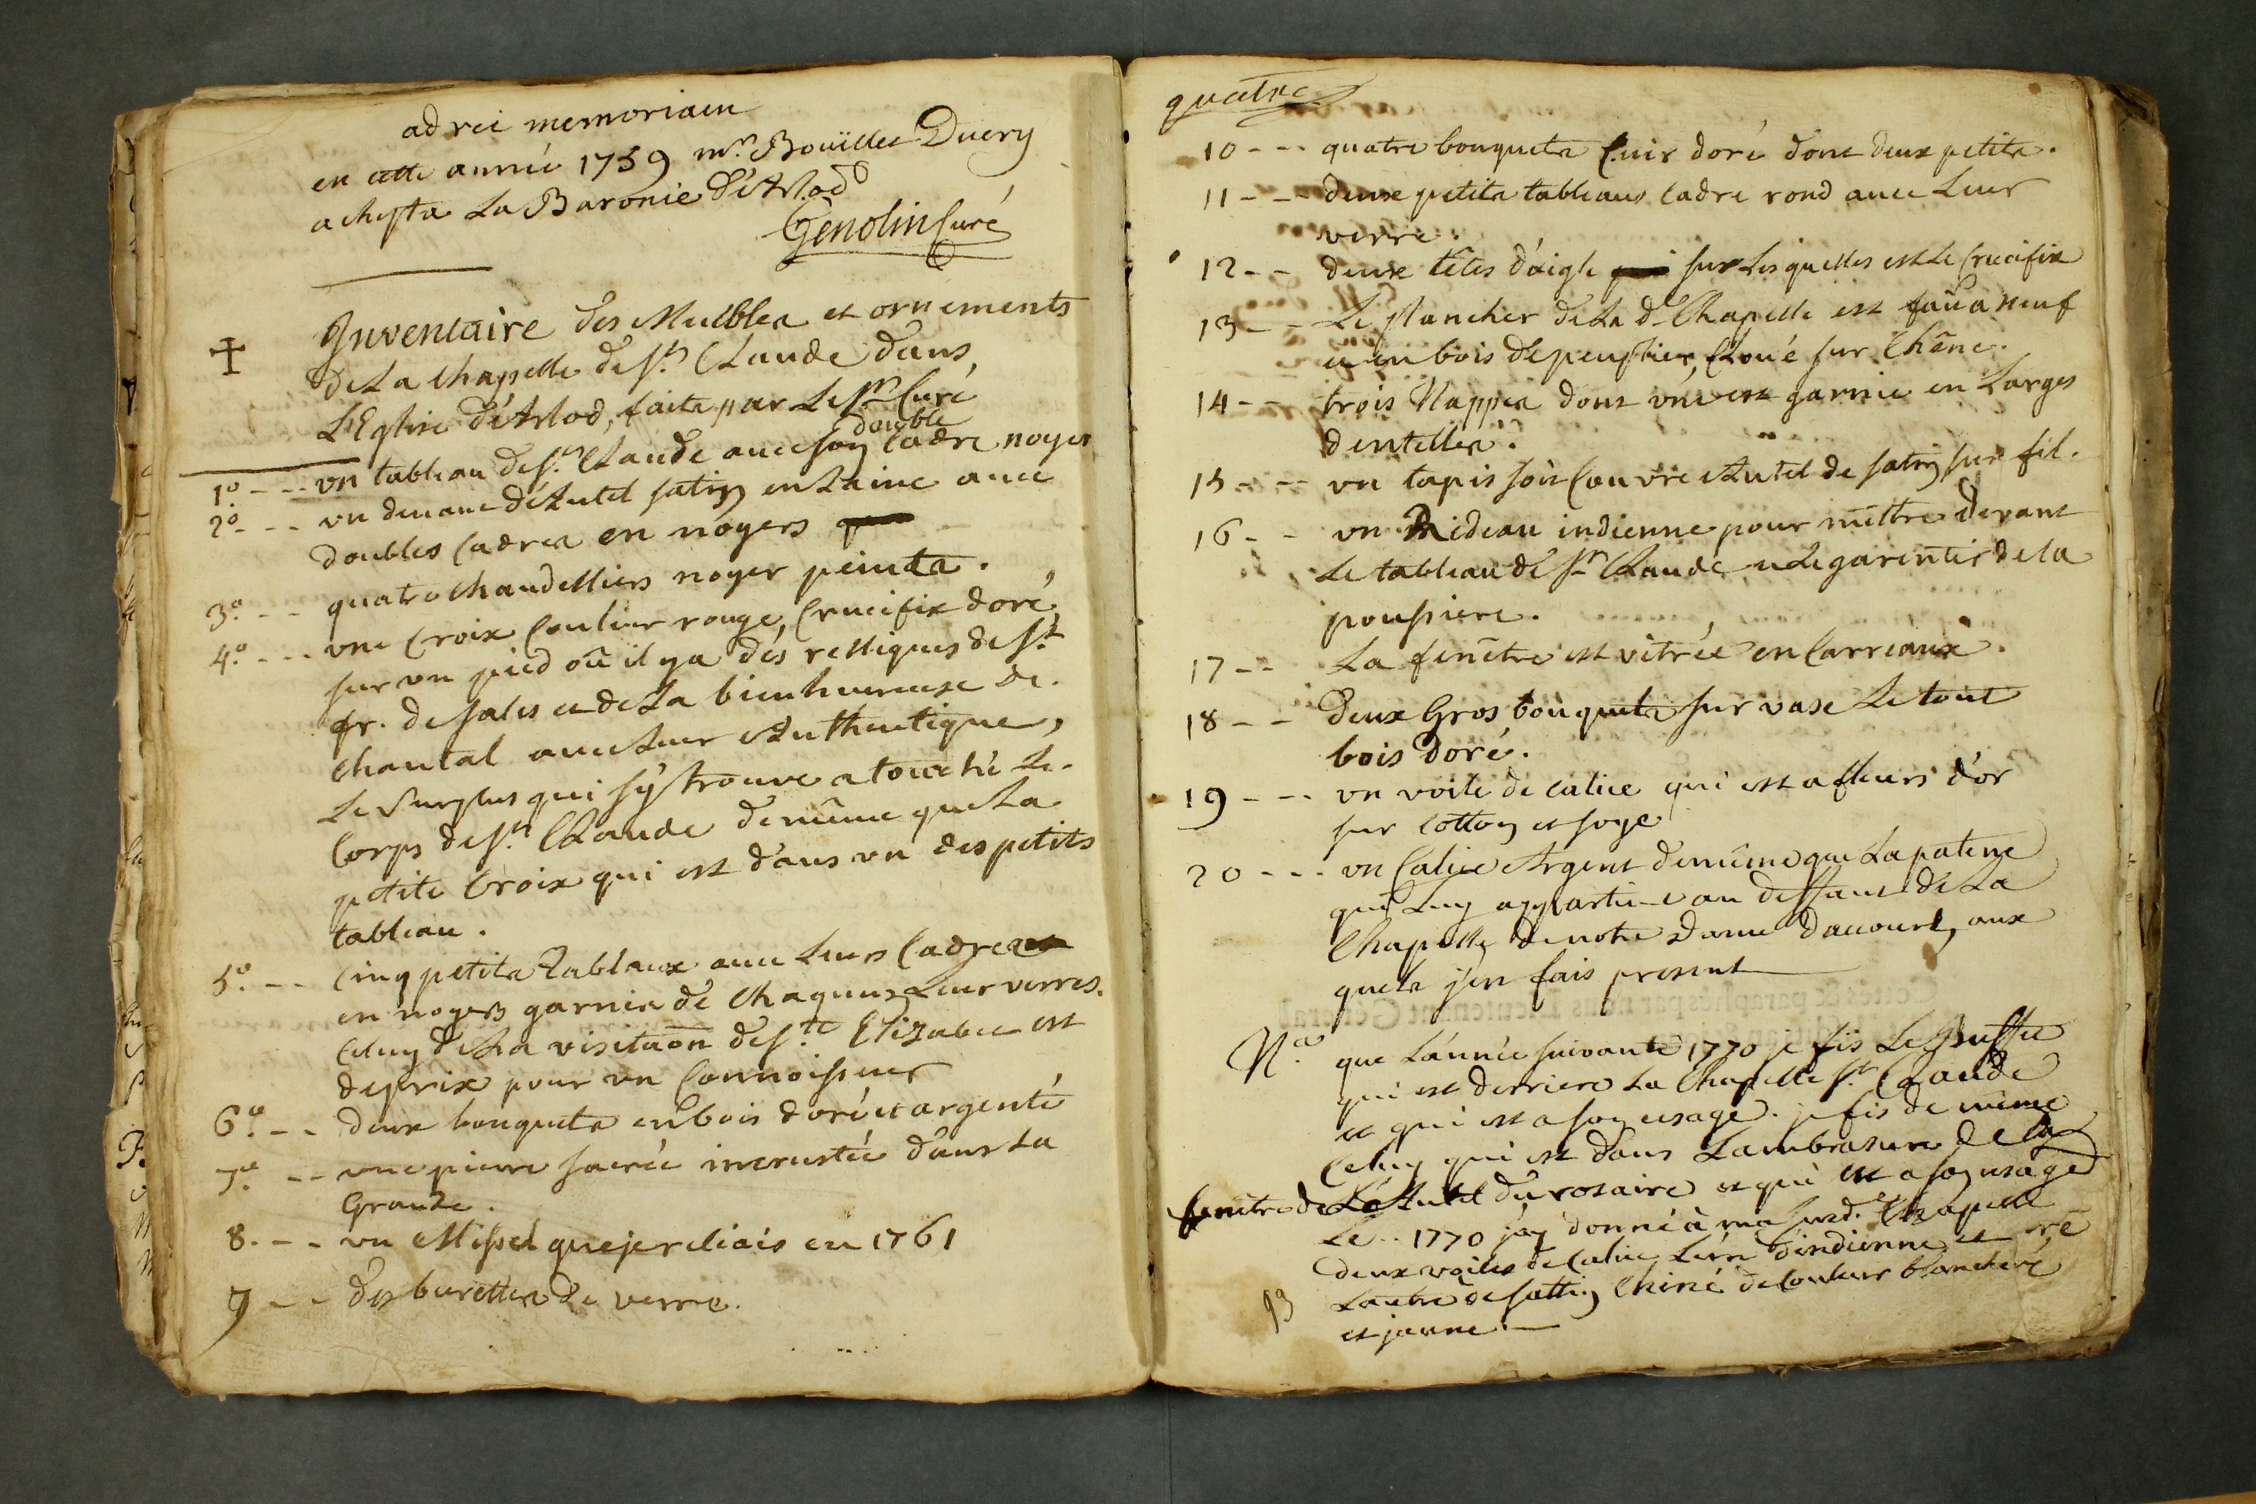 ad rei memoriam
en cette année 1759 mr. Boüillet Duery
achepta La Baronie d'Arlod
Genolin Curé
Inventaire des Muebles et ornements
de La Chapelle de st. Claude dans
L'Eglise d'Arlod, faite par Le sr. Curé
double
1o. --- un tableau de st. Claude avec son Cadre noyer
2o. --- un devant d'Autel satin en Laine avec
doubles Cadres en noyers
3o. --- quatre Chandelliers noyer peints.
4o. --- une Croix Couleur rouge, Crucifix doré
sur un pied où il y a des relliques de st.
fr. de sales et de La bienheureuse de
Chantal avec Leur Authentique,
Le surplus qui s'y trouve a touché Le
Corps de st. Claude de même que La
petite Croix qui est dans un des petits
tableau.
5o. -- Cinq petits tablaux avec Leurs Cadres
en noyers garnis de Chaquuns Leur verres.
Celuy de La visitaôn de ste. Elizabet est
de prix pour un Connoisseur
6o. -- deux bouquets en bois doré et argenté
7o. -- une pierre sacrée incrustée dans La
Grande.
8. -- un Missel que je reliais en 1761
9 -- des burettes de verre.
quatre
10 --- quatre bouquets Cuir doré dont deux petits.
11 --- deux petits tableaux Cadre rond avec Leur
verre.
12 -- deux têtes d'aigle sur Lesquelles est Le Crucifix
13 -- Le plancher de La de. Chapelle est fait a neuf
et en bois de peuplier, Cloué sur Chêne.
14 -- trois Nappes dont une est garnie en Larges
dentelles.
15 --- un tapis soit Couvre Autel de satin sur fil.
16 -- un Rideau indienne pour mettre devant
Le tableau de st. Claude et Le garentir de la
poussiere.
17 -- La fenêtre est vitrée en Carreaux.
18 -- deux Gros bouquets sur vase Le tout
bois doré.
19 --- un voile de calice qui est a fleurs d'or
sur Cotton et soye
20 --- un Calice Argent de même que La patene
qui Luy appartine au deffaut de La
Chapelle de notre Dame d'accourt, aux
quels j'en fais present
Na. que L'année suivante 1770 je fis Le Buffet
qui est derriere La Chapelle st. Claude
et qui est a son usage. je fis de même
Celuy qui est dans L'ambrasure de la
fenêtre de L'Autel du rosaire et qui est a son usage
Le .. 1770 j'ay donné à ma susd. Chapelle
deux voiles de Calice L'un d'indienne et
L'autre de sattin Chiné de Couleur blanche
et jaune.